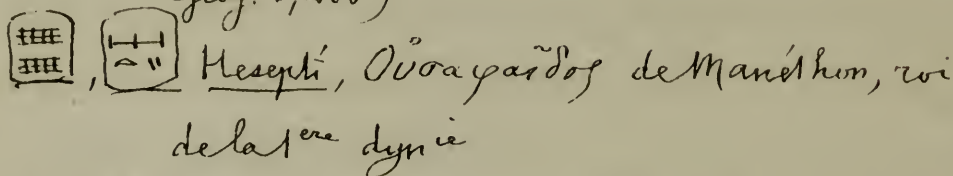 Hesepti, Οὐσαφαῖδος de Manéthon, roi
de la 1ere dynie